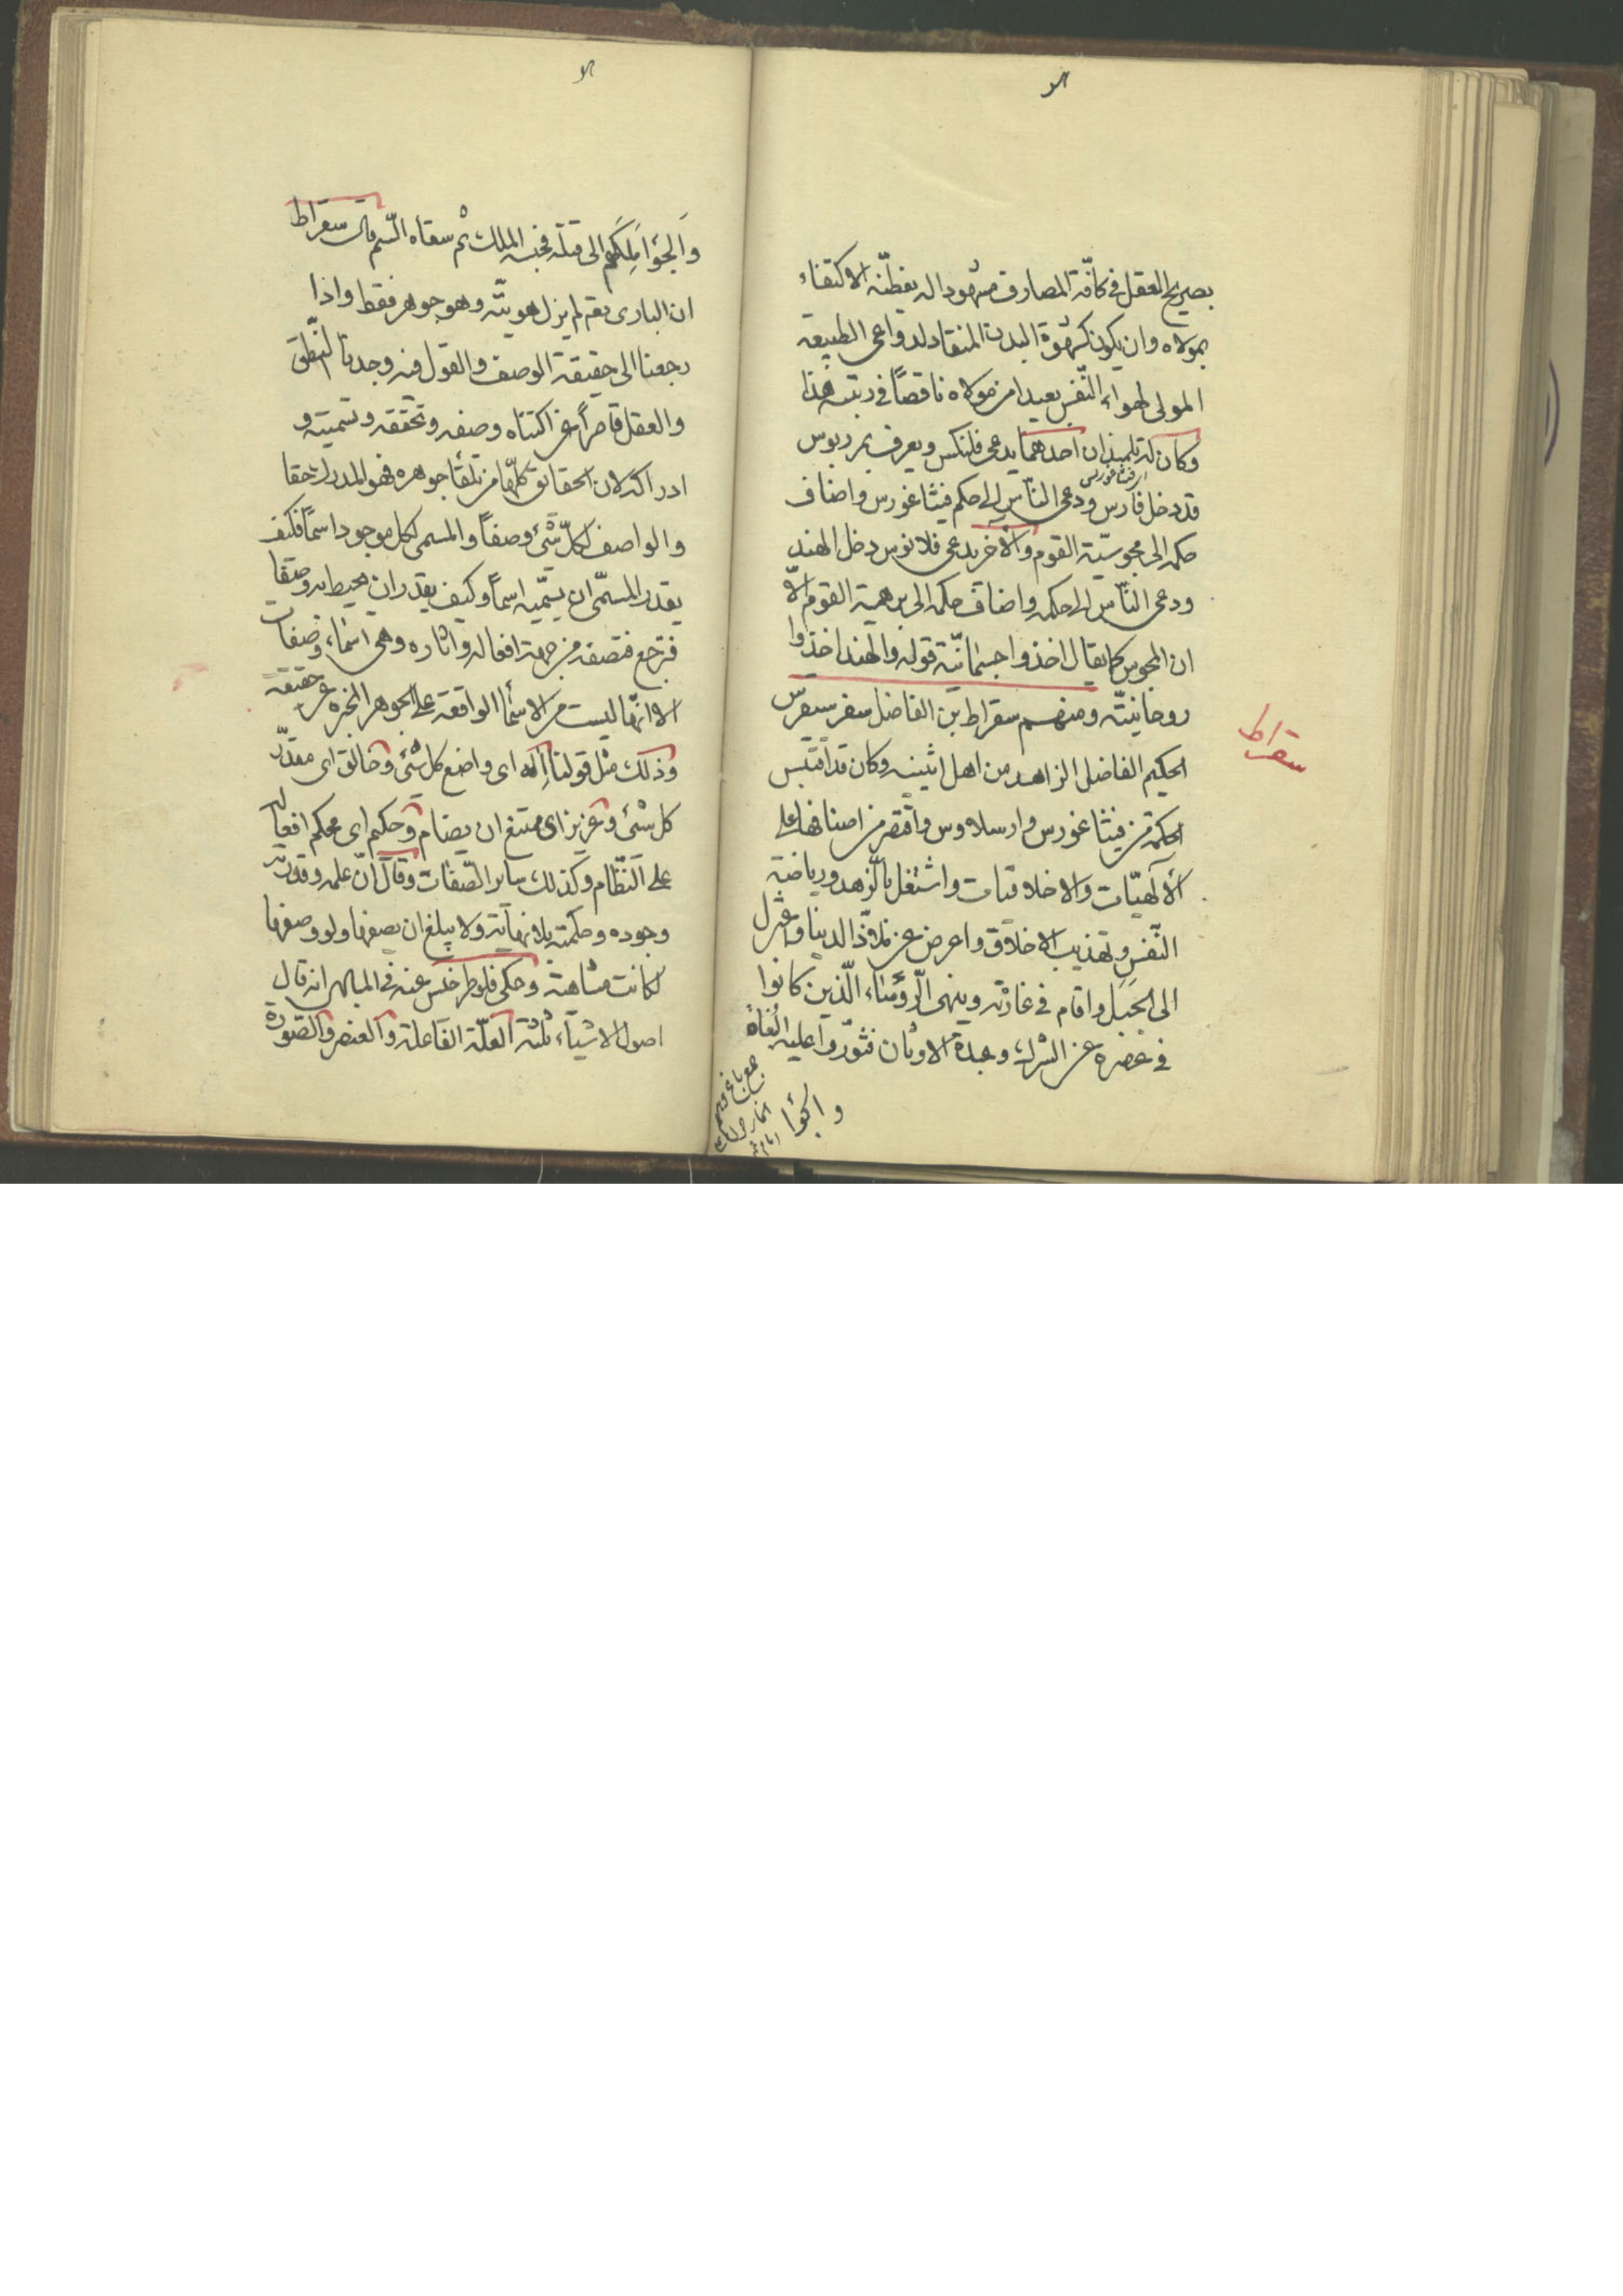 بصريح العقل في كافة المصارف مشهودا له بفطنه الاكتفاء
بمولاه وان يكون كشهوة البدن المنقاد لدواعى الطبيعة
المولى لهواء النّفس بعيدا من مولاه ناقصاً فى رتبته هذا
وكان له تلميذان احدهما يدعى فلنكس ويعرف بمرديوس
قد دخل فارس ودعى النّاس الى حكم فيثاغورس واضاف
حكمه الى مجوسيّة القوم والآخر يدعى فلانوس دخل الهند
ودعى النّاس الى حكمه واضاف حكمه الى برهمية القوم الّا
ان المجوس كما يقال اخذوا جسمانيّة قوله والهند اخذوا
روحانيته ومنهم سقراط بن الفاضل سفرسيقرس
سقراط
الحكيم الفاضل الزاهد من اهل اثينيه وكان قد اقتبس
الحكمة من فيثاغورس وارسلاوس واقتصر من اصنافها على
الآلهيّات والاخلاقيات واشتغل بالزّهد ورياضة
النّفس وتهذيب الاخلاق واعرض عن ملاذّ الدينا واعتزل
الى الجبل واقام فى غار به وينهى الرّؤساء الّذين كانوا
فى عصره عن الشرك وعبدة الاوثان فثوّروا عليه الغاة
والجؤا
والجؤا ملكهم الى قتله فحبسه الملك ثم سقاه السّم قال سقراط
ان البارى تعم لم يزل هويته وهو جوهر فقط واذا
رجعنا الى حقيقة الوصف والقول فيه وجدنا النّطق
والعقل قاصراً عن اكتناه وصفه وتحققه وتسميته و
ادراكه لان الحقائق كلّها من تلقاء جوهره فهو المدرك حقا
والواصف لكلّ شئ وصفاً والمسمى لكل موجود اسماً فكيف
يقدر المسمّى ان يسمّيه اسماً وكيف يقدر ان يحيط به وصفا
فيرجع فيصفه من جهة افعاله واثاره وهى اسماء وصفات
الا انها ليست من الاسما الواقعة على الجوهر المخبره عن حقيقة
وذلك مثل قولنا إله اى واضع كل شئ وخالق اى مقدّر
كل شئ وعزيز اى ممتنع ان يضام وحكيم اى محكم افعاله
على النّظام وكذلك ساير الصّفات وقال انّ علمه وقدرته
وجوده وحكمته بلا نهاية ولا يبلغ ان يصفها ولو وصفها
لكانت متناهية وحكى فلوطرخس عنه فى المبادى انه قال
اصول الاشياء ثلثة العلّة الفاعلة والعنصر والصّورة